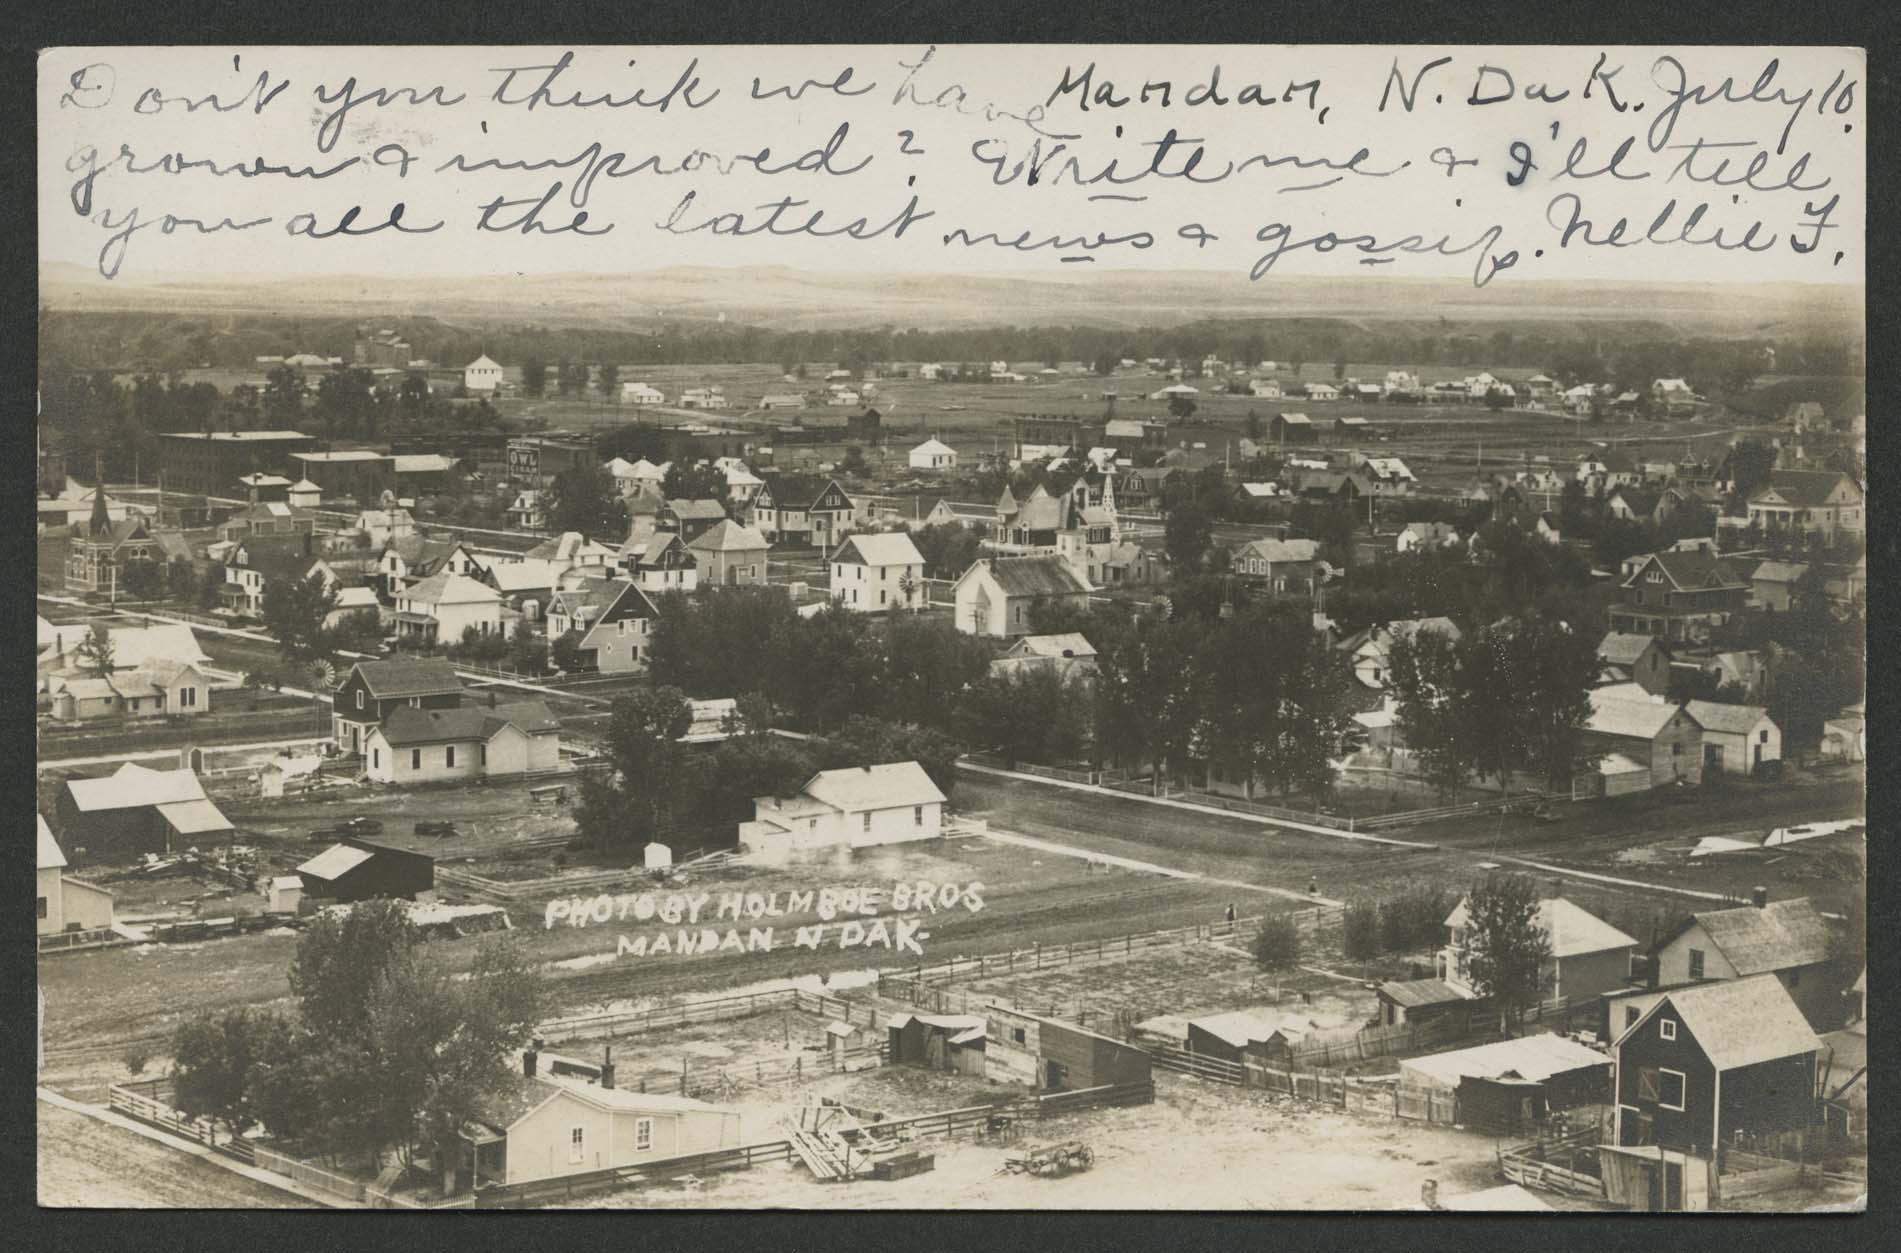 Don't you think we have Mandan, N. Dak. July 10.
grown & improved? Write me & I'll tell
you all the latest news & gossip. Nellie F.
OWL
CIGAR
PHOTO BY HOLMBOE BROS
MANDAN N DAK-